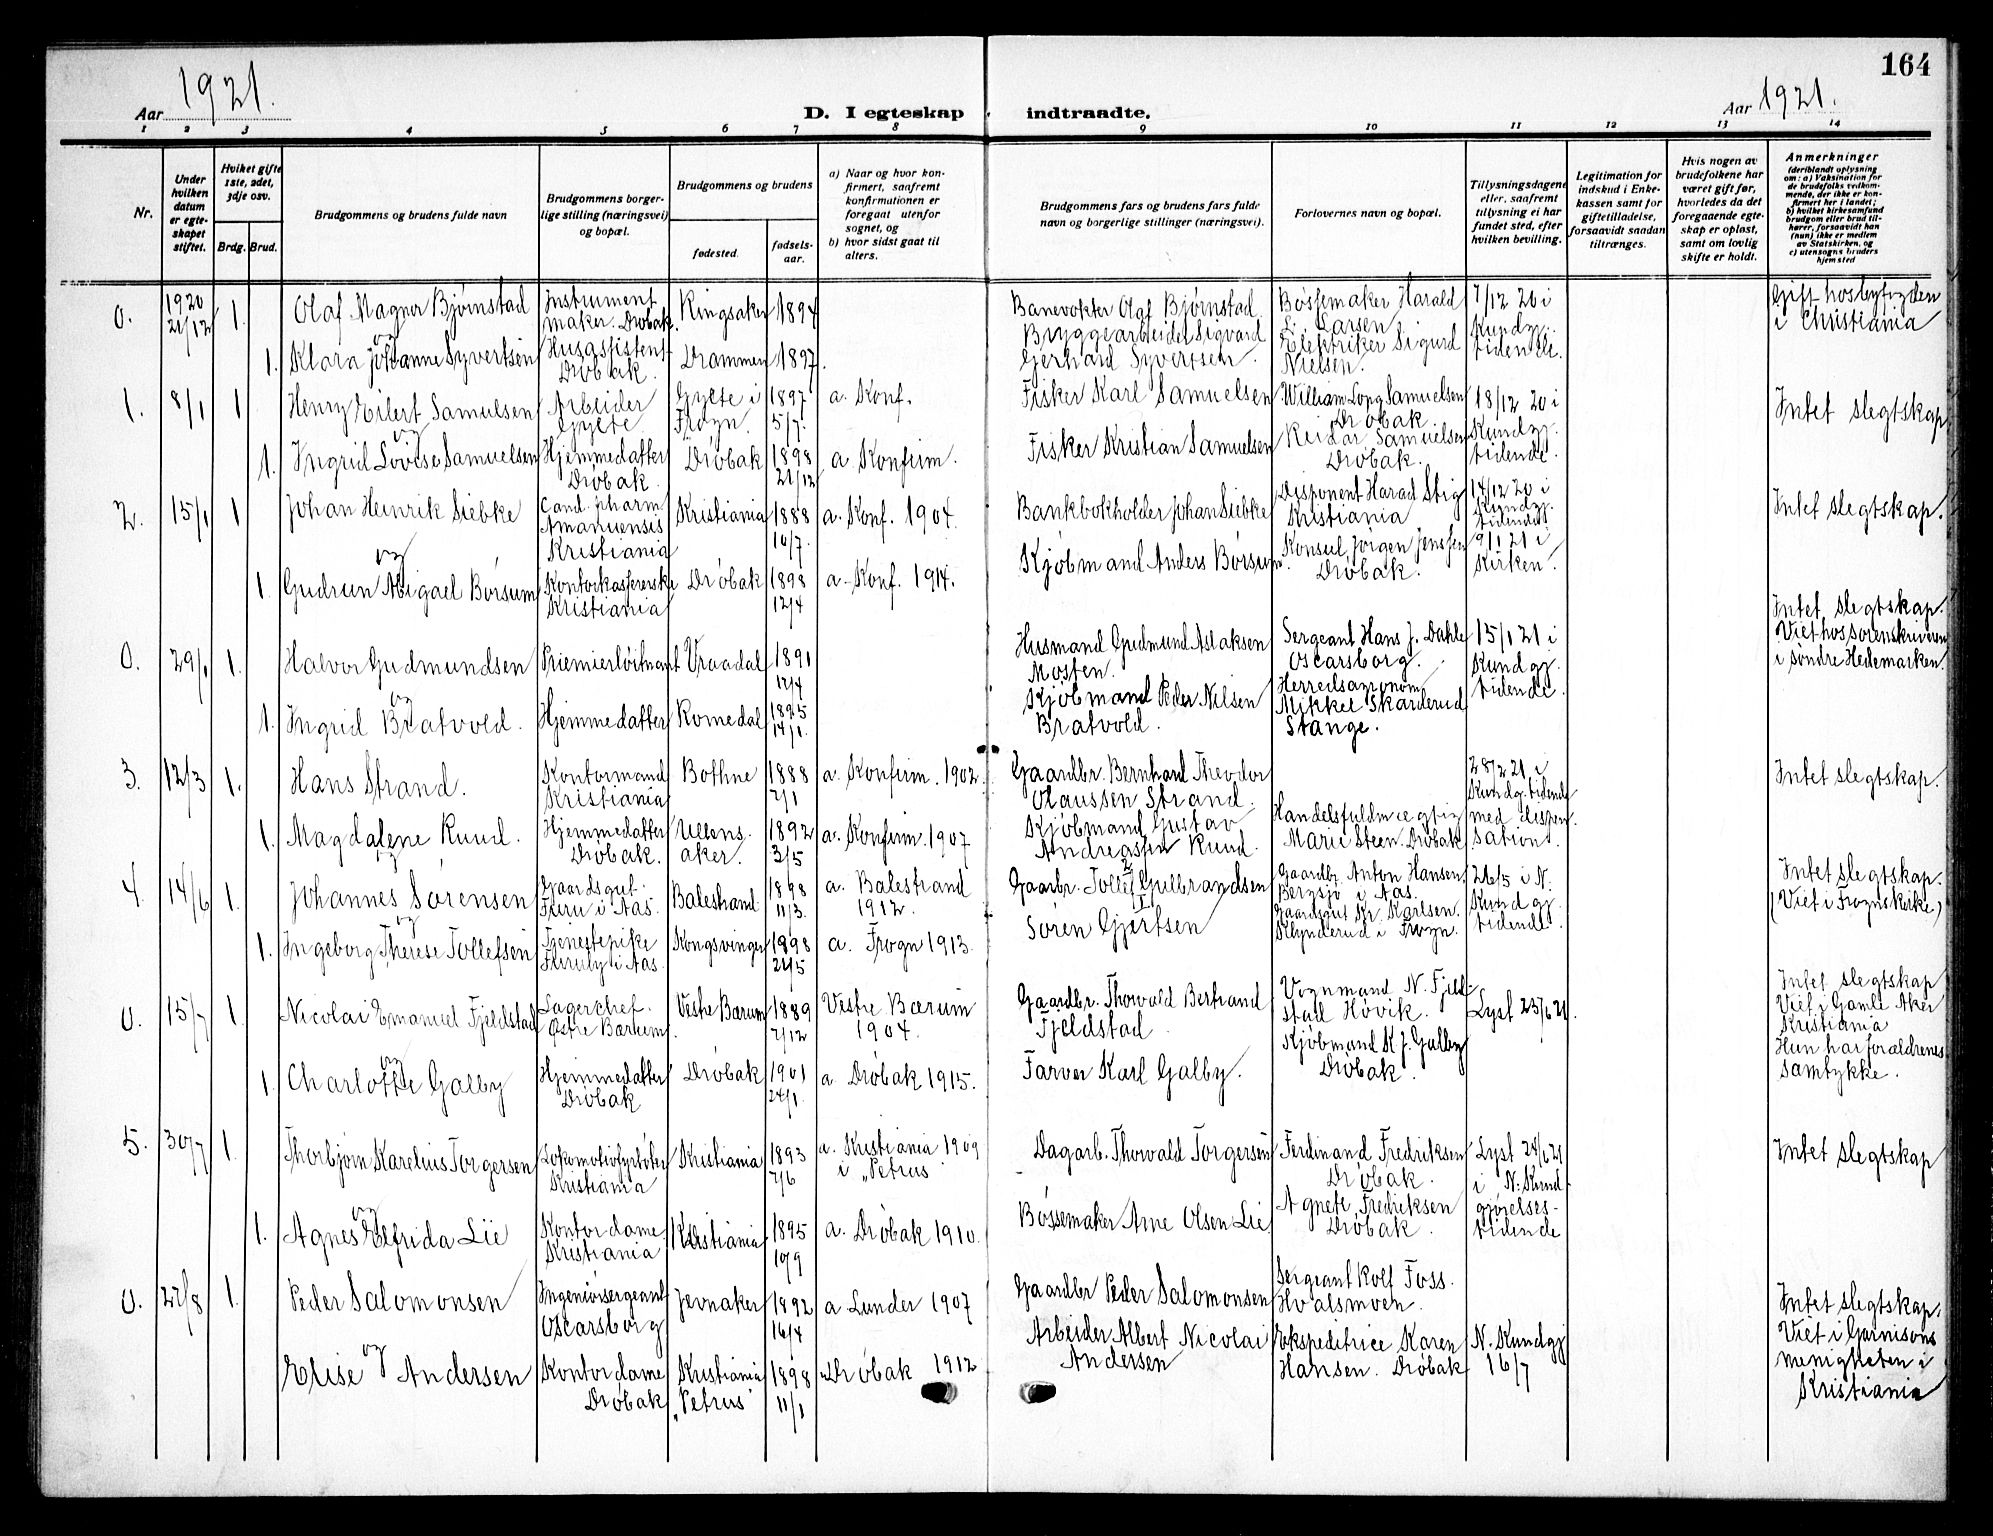 164
Aar 1921.
D. I egteskap indtraadte.
Aar 1921.
1 2 3 4 5 6 7 8 9 10 11 12 13 14
Nr.
Under hvilken datum er egteskapet stiftet.
Hvilket gifte 1ste, 2det, 3dje osv.
Brdg. Brud.
Brudgommens og brudens fulde navn
Brudgommens borgerlige stilling (næringsvei) og bopæl.
Brudgommens og brudens
fødested.
fødselsaar.
a) Naar og hvor konfirmert, saafremt konfirmationen er foregaat utenfor sognet, og
b) hvor sidst gaat til alters.
Brudgommens fars og brudens fars fulde navn og borgerlige stillinger (næringsvei).
Forlovernes navn og bopæl.
Tillysningsdagene eller, saafremt tillysning ei har fundet sted, efter hvilken bevilling.
Legitimation for indskud i Enkekassen samt for giftetilladelse, forsaavidt saadan tiltrænges.
Hvis nogen av brudefolkene har været gift før, hvorledes da det foregaaende egteskap er opløst, samt om lovlig skifte er holdt.
Anmerkninger
(deriblandt oplysning om: a) Vaksination for de brudefolks vedkommende, der ikke er konfirmert her i landet; b) hvilket kirkesamfund brudgom eller brud tilhører, forsaavidt han (hun) ikke er medlem av Statskirken, og c) utensogns bruders hjemsted
0. 1920 21/12 1. Olaf Magnor Bjørnstad Instrumentmaker. Drøbak. Ringsaker 1894 Banevokter Olaf Bjørnstad Bøssemaker Harald L. Larsen 7/12 20 i Kundgj. tidende. Gift hos byfogden i Christiania
og
1. Klara Johanne Syvertsen Husassistent Drøbak. Drammen 1897. Bryggearbeider Sigvard Gerhard Syvertsen. Elektriker Sigurd Nielsen.
1. 8/1 1 Henry Eilert Samuelsen Arbeider Gylte Gylte i Frogn. 1897 5/7. a. Konf. Fisker Karl Samuelsen William Long Samuelsen Drøbak 18/12 20 i Kundgj. tidende. Intet slegtskap.
og
1. Ingrid Lovise Samuelsen Hjemmedatter Drøbak. Drøbak 1898 21/12 a Konfirm. Fisker Kristian Samuelsen Reidar Samuelsen Drøbak.
2. 15/1 1 Johan Heinrik Siebke Cand. pharm Amanuensis Kristiania Kristiania 1888 10/7. a. Konf. 1904. Bankbokholder Johan Siebke Disponent Harad Stig Kristiania 14/12 20 i Kundgj. tidende 9/1 21 i Kirken. Intet slegtskap.
og
1. Gudrun Abigael Børsum Kontorkassererske Kristiania Drøbak 1898 12/4 a. Konf. 1914. Kjøbmand Anders Børsum. Konsul Jørgen Jenssen Drøbak.
0. 29/1 1. Halvor Gudmundsen Premierløitnant Vraadal 1891 12/4 Husmand Gudmund Aslaksen Mosten. Sergeant Hans J. Dahle Oscarsborg. 15/1 21 i Kundgj. tidende. Intet slegtskap. Viet hos sorenskriveren i søndre Hedemarken.
og
1. Ingrid Bratvold. Hjemmedatter Romedal 1895 14/1. Kjøbmand Peder Nilsen Bratvold. Herredsagronom Mikkel Skarderud Stange.
3. 12/3 1. Hans Strand. Kontormand Kristiania Bothne 1888 2/1 a. Konfirm. 1902. Gaardbr. Bernhard Theodor Olaussen Strand. 28/2 21 i Kundg. tidende med dispensation. Intet slegtskap.
1. Magdalene Ruud. Hjemmedatter Drøbak. Ullensaker. 1892 3/5 a. Konfirm. 1907 Kjøbmand Gustav Andreassen Ruud. Handelsfuldmægtig Marie Steen. Drøbak
4. 14/6 1. Johannes Sørensen Gaardsgut. Furu i Aas. Balestrand 1898 11/3. a. Balestrand 1912. Gaarbr. Tollef Gulbrandsen 2 Gaardbr. Anton Hansen, Bergsjø i Aas. 26/5 i N. Kundgj. tidende. Intet slegtskap. (Viet i Frogns kirke)
og
1. Ingeborg Therese Tollefsen Tjenestepike Furuly i Aas. Kongsvinger 1898 21/5 a. Frogn 1913. Søren Gjertsen 1 Gaardsgut Kr. Karlsen. Klynderud i Frogn.
0. 15/7 1. Nicolai Emanuel Fjeldstad Lagerchef. Østre Bærum Vestre Bærum. 1889 2/12 Vestre Bærum 1904. Gaardbr. Thorvald Bertrand Fjeldstad. Vognmand N. Fjeldstad Høvik. Lyst 23/6 21. Intet slegtskap Viet i Gamle Aker Kristiania Hun har forældrenes samtykke.
og
1. Charlotte Galby Hjemmedatter Drøbak Drøbak 1901 24/1. a. Drøbak 1915. Farver Karl Galby. Kjøbmand K. J. Galby Drøbak.
5. 30/7 1. Thorbjørn Karelius Torgersen Lokomotivfyrbøter Kristiania Kristiania 1893 7/6 a. Kristiania 1909 i „Petrus" Dagarb. Thorvald Torgersen Ferdinand Fredriksen Drøbak. Lyst 24/6 21 i N. Kundgjørelsestidende Intet slegtskap
og
1. Agnes Elfrida Lie Kontordame Kristiania Kristiania 1895 10/9 a. Drøbak 1910. Bøssemaker Arne Olsen Lie Agnete Fredriksen Drøbak.
0. 27/8 1. Peder Salomonsen Ingeniørsergeant Oscarsborg Jevnaker 1892 16/4 a Lunder 1907 Gaardbr Peder Salomonsen Sergeant Rolf Foss. Hvalsmoen. N. Kundgj 16/7 Intet slegtskap. Viet i Garnisonsmenigheten i Kristiania
og
Elise Andersen Kontordame Drøbak Kristiania „Petrus" 1898 11/1 Drøbak 1912 Arbeider Albert Nicolai Andersen Ekspeditrice Karen Hansen. Drøbak